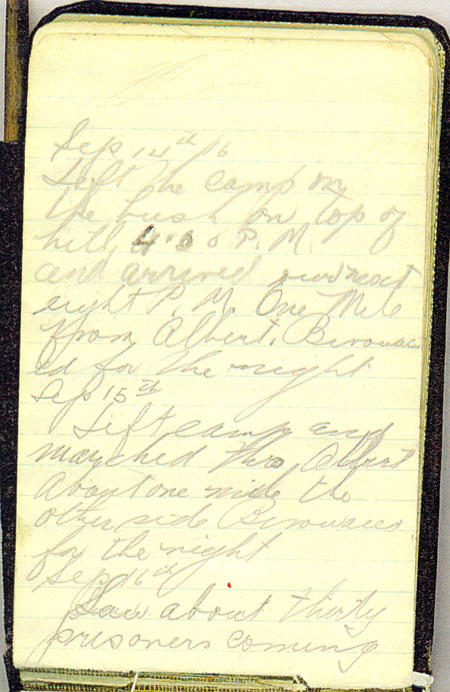 Sep 14th 16
Left the camp in
the bush on top of
hill 4.30 P.M.
and arrived
eight P.M. One Mile
from Albert. Bivouac
ed for the night
Sep 15th
Left camp and
marched thro Albert
About one mile the
other side Bivouaced
for the night
Sep 16th
Saw about thirty
prisoners coming